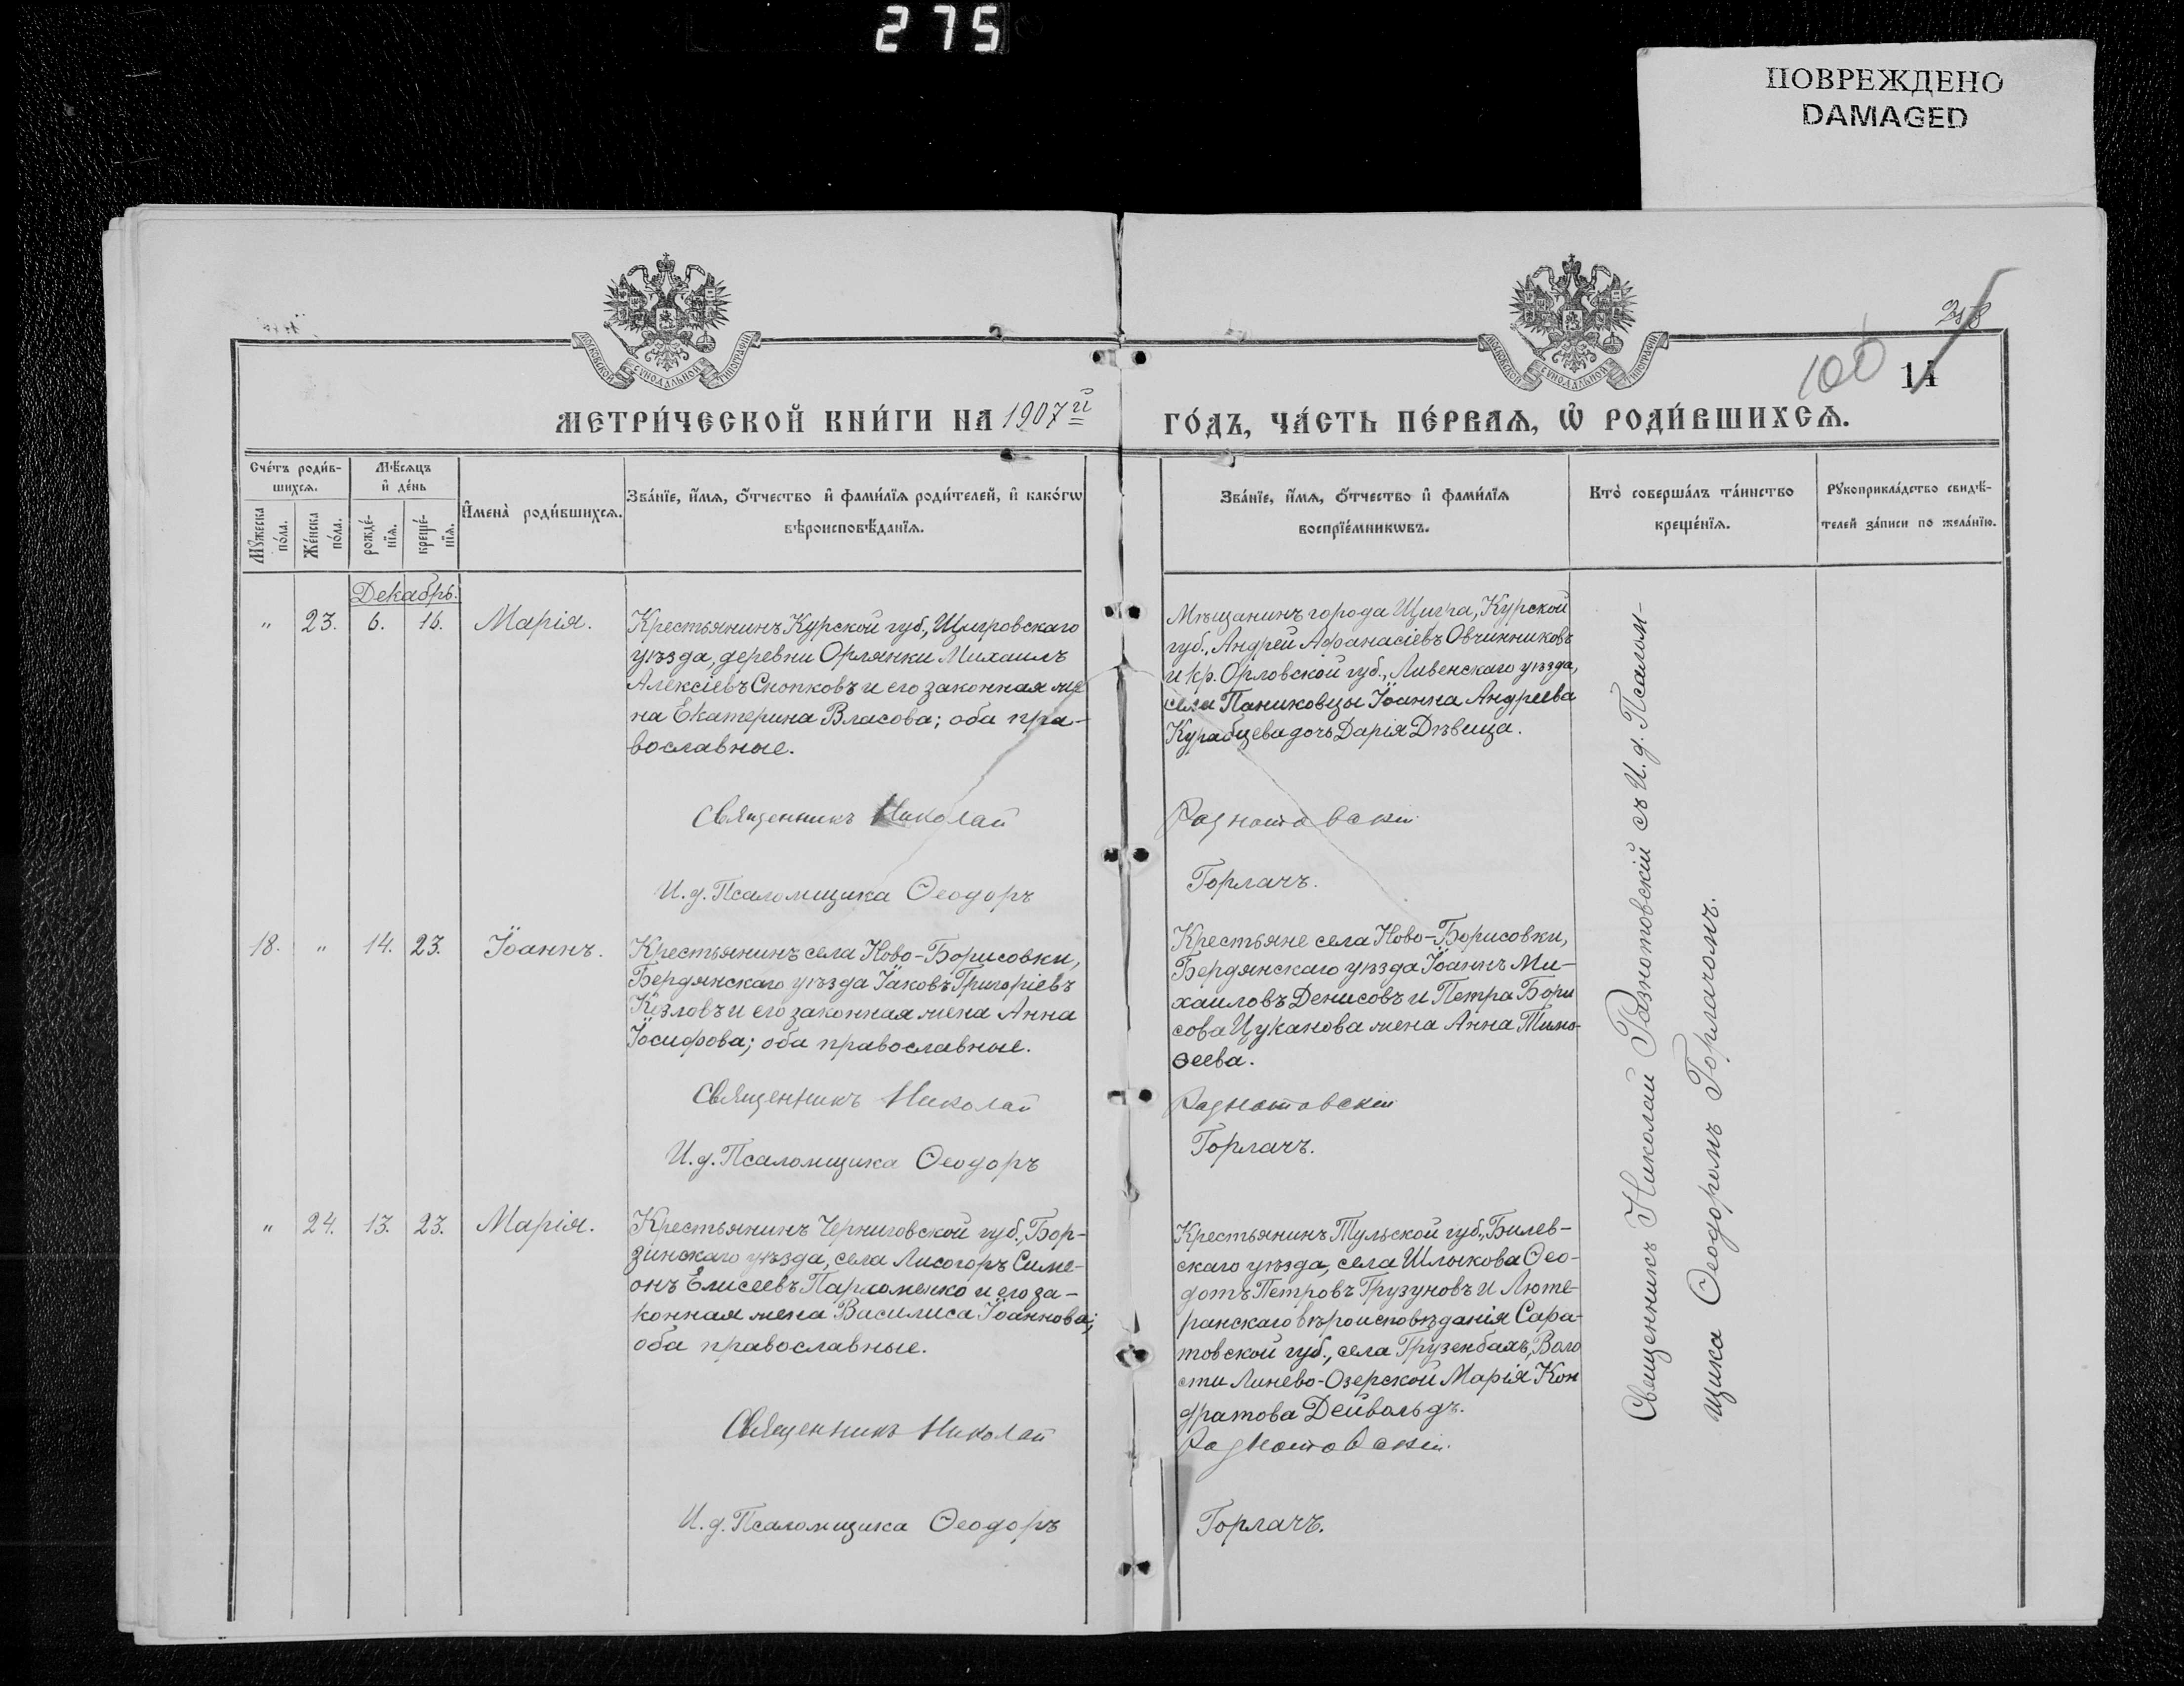 275
ПОВРЕЖДЕНО
DAMAGED
МОСКОВСКОЙ СѴНОДАЛЬНОЙ ТИПОГРАФІИ
МОСКОВСКОЙ СѴНОДАЛЬНОЙ ТИПОГРАФІИ
100
14
МЕТРИ́ЧЕСКОЙ КНИ́ГИ НА 1907й
ГО́ДЪ, ЧА́СТЬ ПЕ́РВАѦ, Ѡ҆ РОДИ́ВШИХСѦ.
Сче́тъ роди́в-
шихсѧ.
Мꙋ́жеска
по́ла.
Же́нска
по́ла.
Мѣ́сѧцъ
и҆ де́нь
рожде́-
нїѧ.
креще́-
нїѧ.
И҆мена̀ роди́вшихсѧ.
Зва́нїе, и҆́мѧ, ѻ҆́тчество и҆ фами́лїѧ роди́телей, и҆ како́гѡ
вѣроисповѣ́данїѧ.
Зва́нїе, и҆́мѧ, ѻ҆́тчество и҆ фами́лїѧ
воспрїе́мникѡвъ.
Кто̀ соверша́лъ та́инство
креще́нїѧ.
Рꙋкоприкла́дство свидѣ́-
телей за́писи по жела́нїю.
Декабрь.
" 23. 6. 16. Марія.
Крестьянинъ Курской губ., Щигровскаго
уѣзда, деревни Орлянки Михаилъ
Алексіевъ Снопковъ и его законная же
на Екатерина Власова; оба пра-
вославные.
Священникъ Николай
И. д. Псаломщика Ѳеодоръ
Мѣщанинъ города Щигра, Курской
губ., Андрей Аѳанасіевъ Овчинниковъ
и кр. Орловской губ., Ливенскаго уѣзда,
села Паниковцы Іоанна Андреева
Курабцева дочь Дарія Дѣвица.
Разнотовскій
Горлачъ.
18. " 14. 23. Іоаннъ.
Крестьянинъ села Ново-Борисовки,
Бердянскаго уѣзда Іаковъ Григоріевъ
Козловъ и его законная жена Анна
Іосифова; оба православные.
Священникъ Николай
И. д. Псаломщика Ѳеодоръ
Крестьяне села Ново-Борисовки,
Бердянскаго уѣзда Іоаннъ Ми-
хаиловъ Денисовъ и Петра Бори
сова Цуканова жена Анна Тимо-
ѳеева.
Разнотовскій
Горлачъ.
" 24. 13. 23. Марія.
Крестьянинъ Черниговской губ., Бор-
зинскаго уѣзда, села Лисогоръ Симе-
онъ Елисеевъ Пархоменко и его за-
конная жена Василиса Іоаннова;
оба православные.
Священникъ Николай
И. д. Псаломщика Ѳеодоръ
Крестьянинъ Тульской губ., Билев-
скаго уѣзда, села Шлыкова Ѳео-
дотъ Петровъ Грузуновъ и Люте-
ранскаго вѣроисповѣданія Сара-
товской губ., села Грузенбахъ, Воло
сти Линево-Озерской Марія Кон
дратова Дейвальдъ.
Разнотовскій.
Горлачъ.
Священникъ Николай Разнотовскій съ И. д. Псалом-
щика Ѳеодоромъ Горлачомъ.